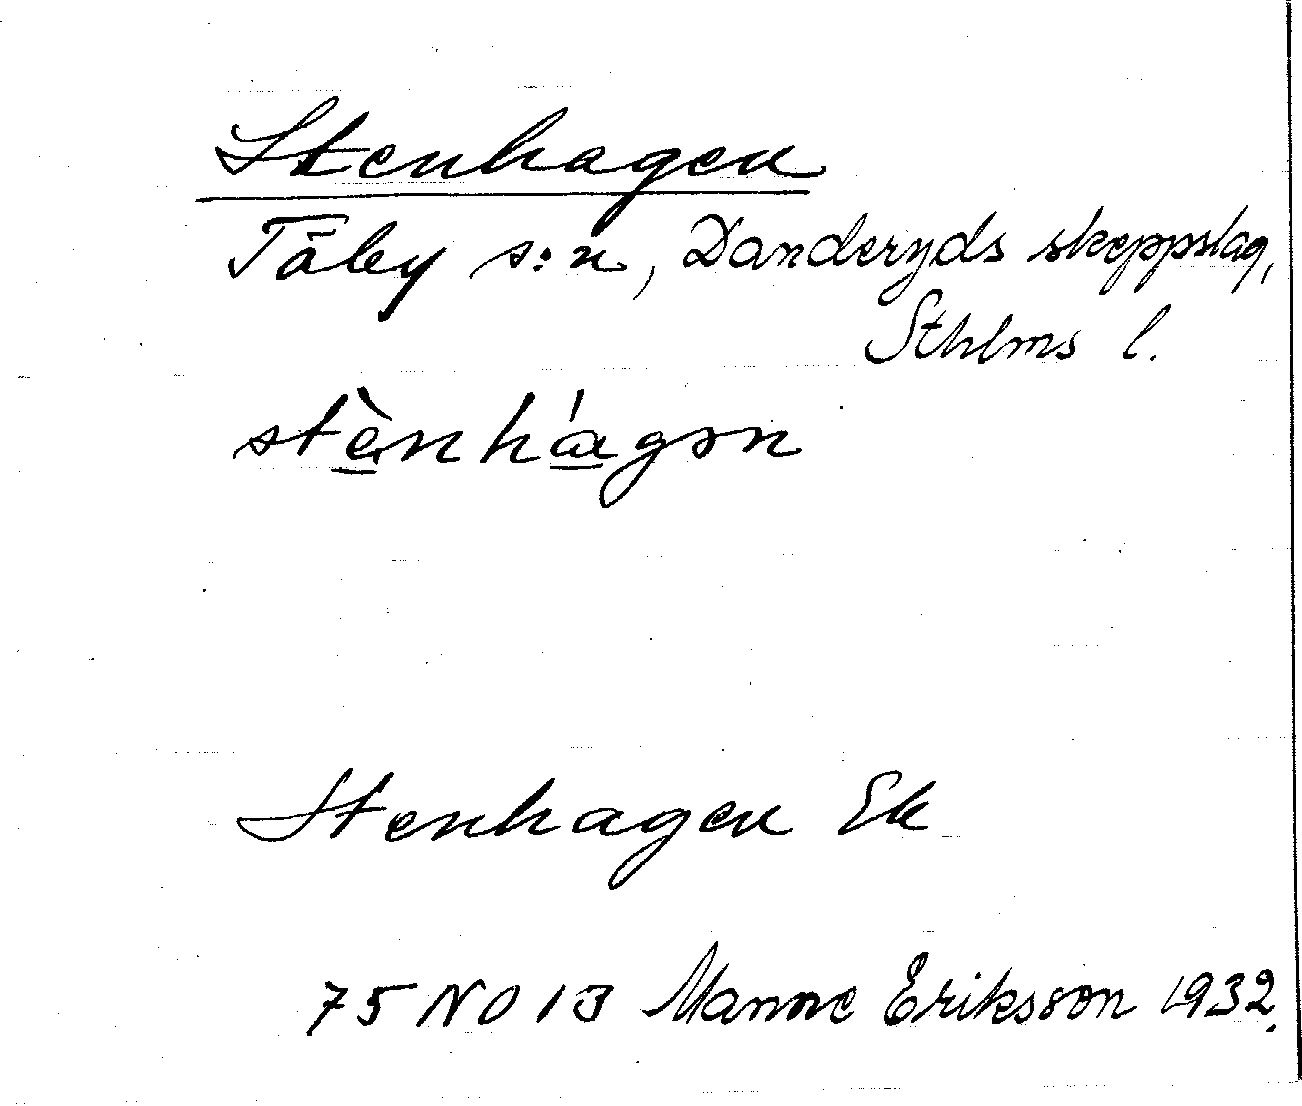 Stenhagen
Täby s:n, Danderyds skeppslag,
Sthlms l.
stè̱nhá̱gən
Stenhagen Ek
75 NO 1B Manne Eriksson 1932.